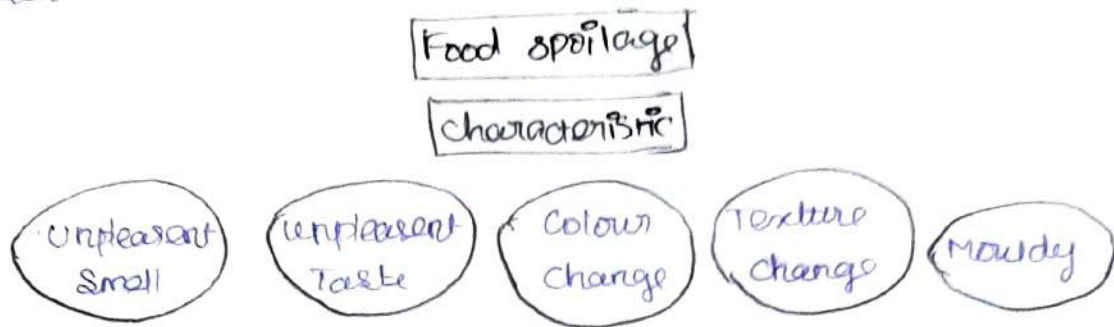 Food spoilage
characteristic
Unpleasent
Small
unpleasent
Taste
Colour
Change
Texture
change
Mouldy